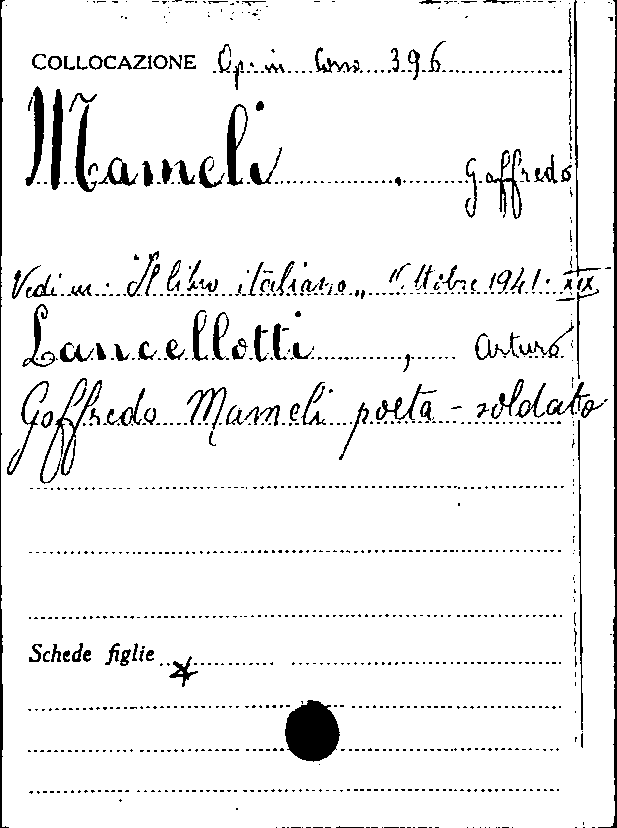 COLLOCAZIONE Op. in Corso 396
Mameli . Goffredo
Vedi in. "Il libro italiano" Ottobre 1941. XIX
Lancellotti , Arturo
Goffredo Mameli poeta - soldato
Schede figlie